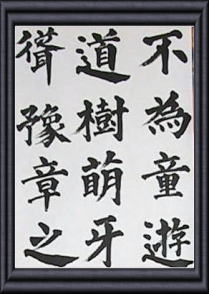 不為童遊
道樹萌牙
聳豫章之